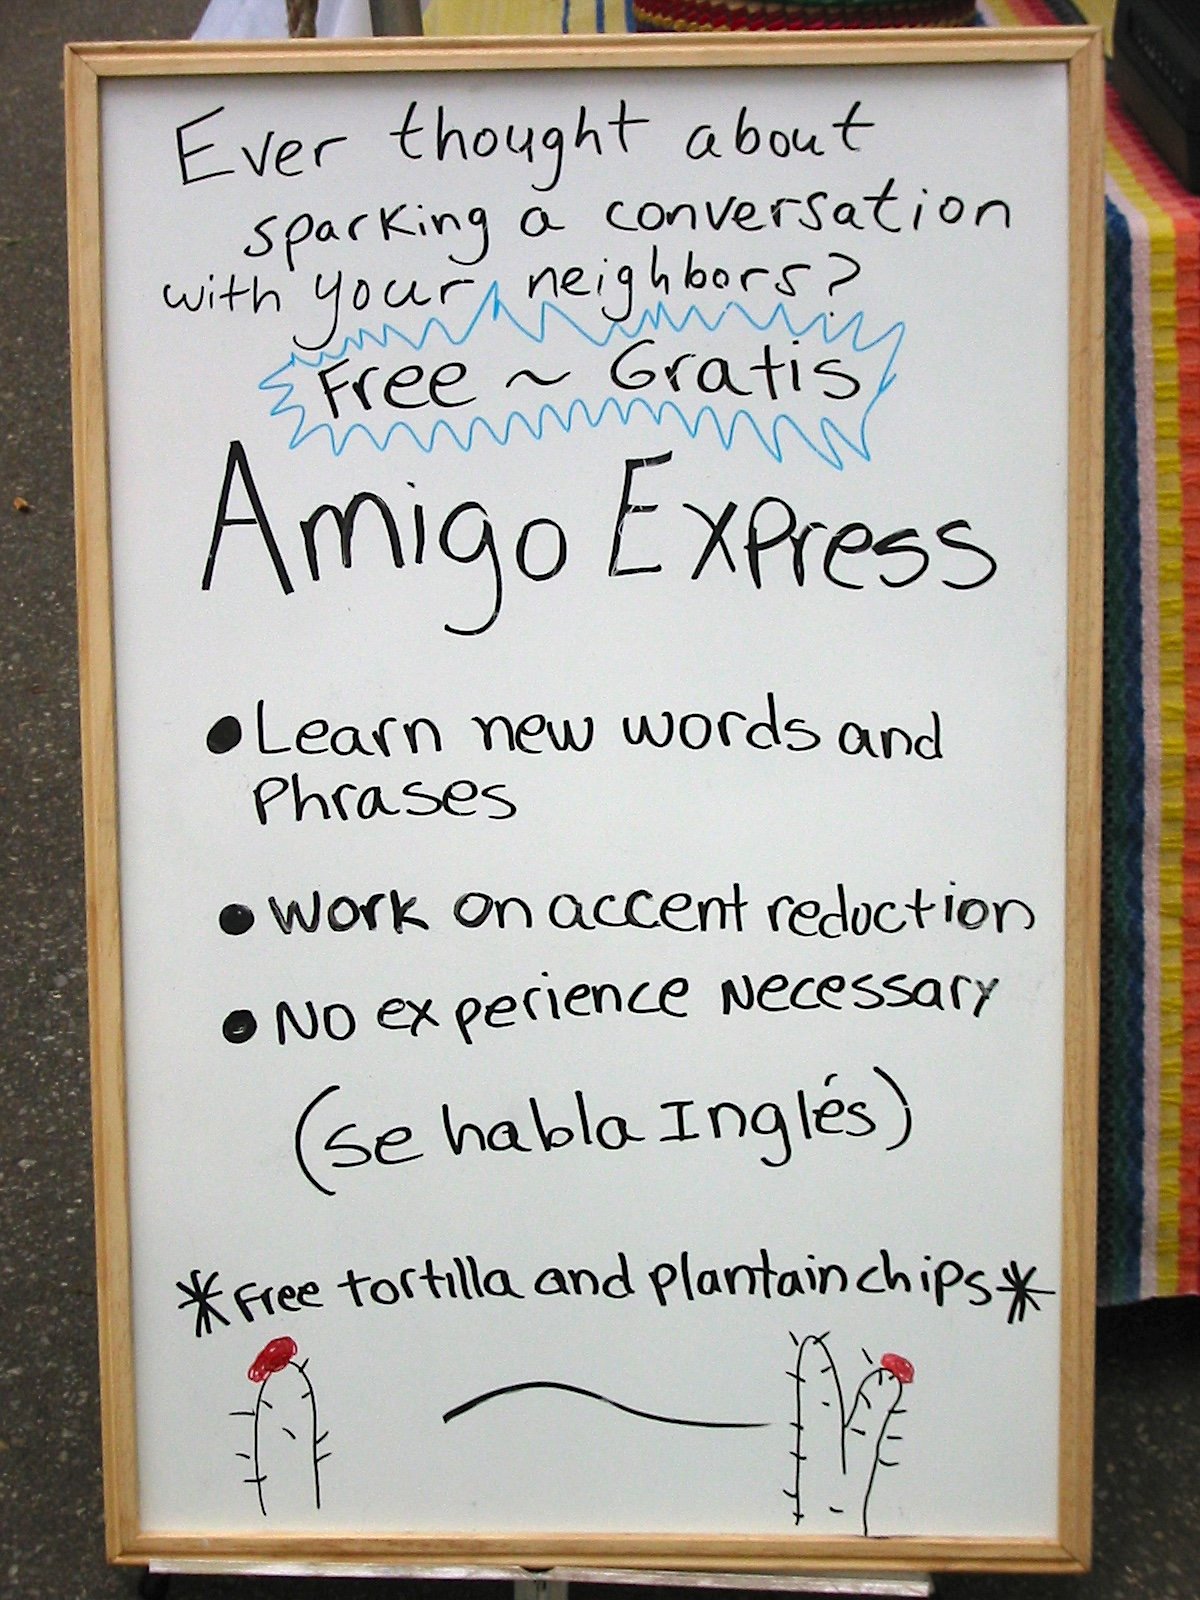 Ever thought about
sparking a conversation
with your neighbors?
Free ~ Gratis
Amigo Express
• Learn new words and
phrases
• Work on accent reduction
• No experience necessary
(se habla Inglés)
*free tortilla and plantain chips*